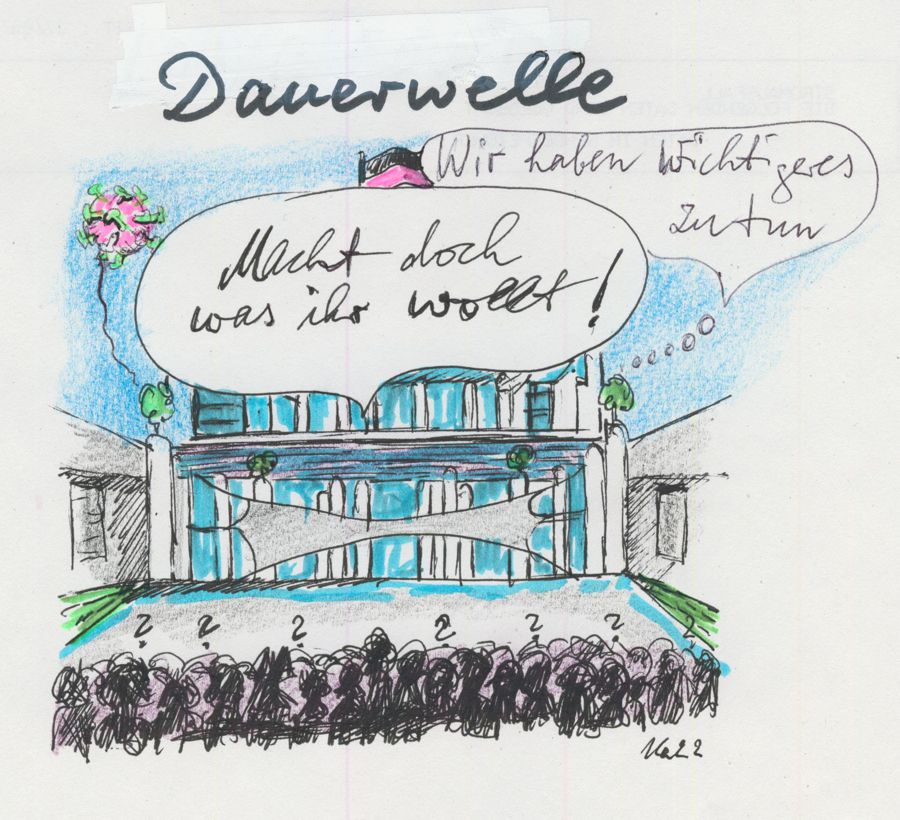 Dauerwelle
Wir haben Wichtigeres
zu tun
Macht doch
was ihr wollt!
? ? ? ? ? ? ?